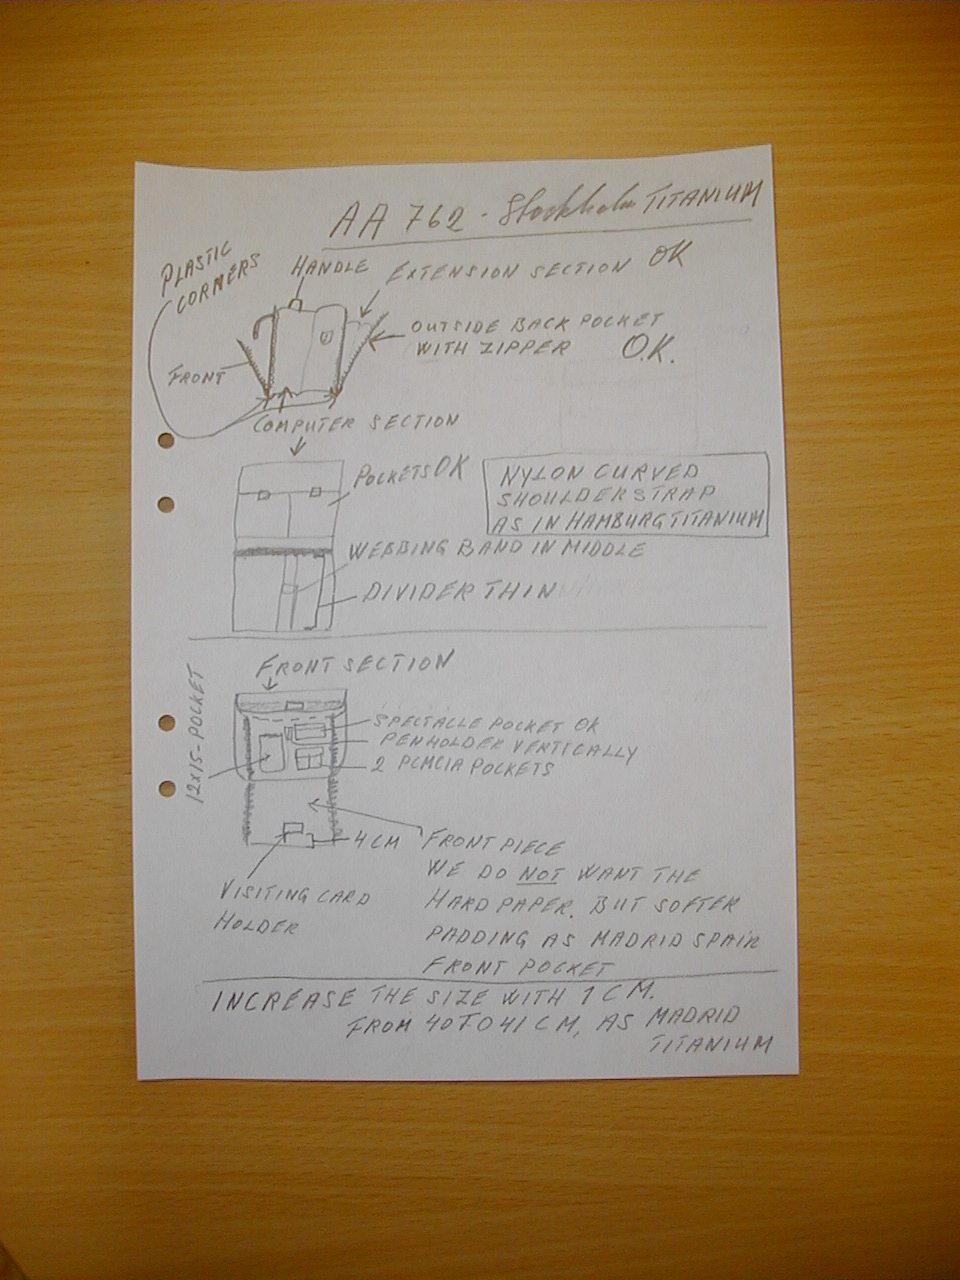 AA 762 - Stockholm TITANIUM
PLASTIC
CORNERS
HANDLE
EXTENSION SECTION OK
OUTSIDE BACK POCKET
WITH ZIPPER O.K.
FRONT
COMPUTER SECTION
POCKETS OK
NYLON CURVED
SHOULDERSTRAP
AS IN HAMBURG TITANIUM
WEBBING BAND IN MIDDLE
DIVIDER THIN
FRONT SECTION
12x15-POCKET
SPECTACLE POCKET OK
PENHOLDER VERTICALLY
2 PCMCIA POCKETS
4 CM
VISITING CARD
HOLDER
FRONT PIECE
WE DO NOT WANT THE
HARD PAPER. BUT SOFTER
PADDING AS MADRID SPAIN
FRONT POCKET
INCREASE THE SIZE WITH 1 CM.
FROM 40 TO 41 CM, AS MADRID
TITANIUM